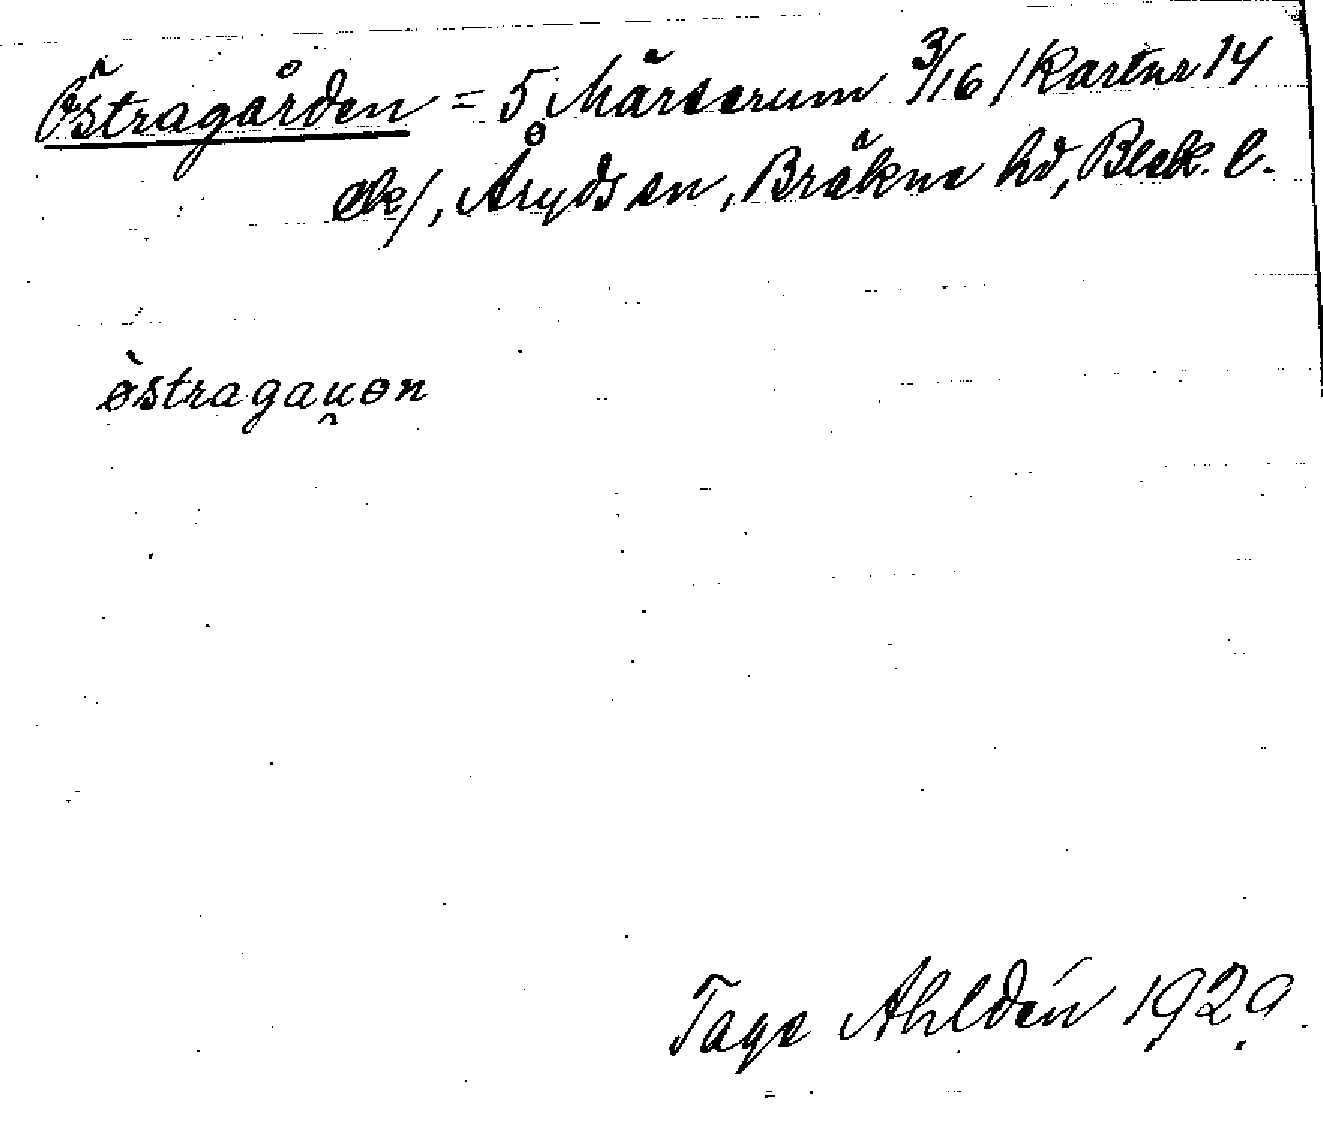 Östragården = 5 Märserum 3/16 / Kartnr 14
ek/, Åryds sn, Bräkne hd, Blek. l.
ɵ̀stragau̯ɵn
Tage Ahldén 1929.